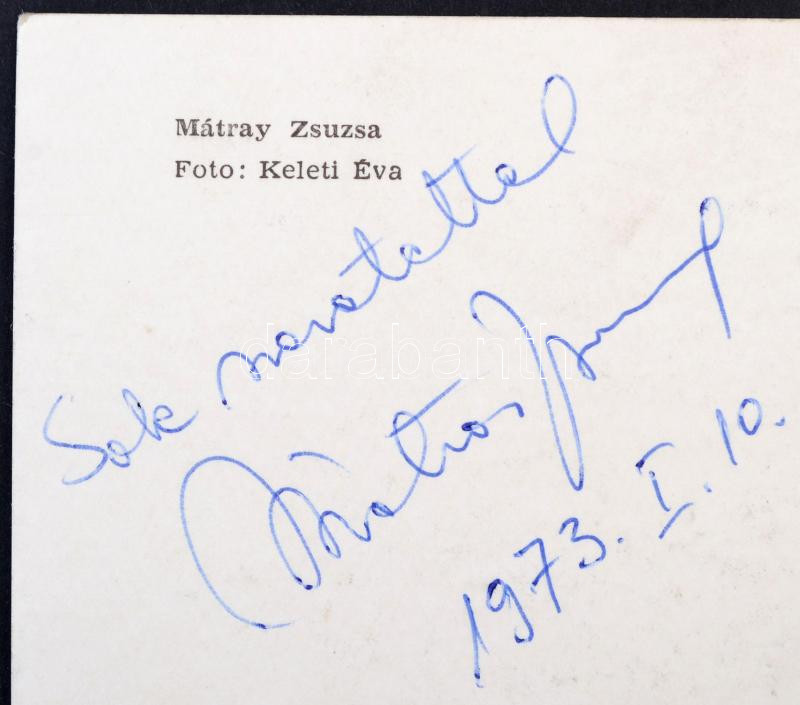 Mátray Zsuzsa
Foto: Keleti Éva
Sok szeretettel
Mátray Zsuzsa
1973. I. 10.
darabanth